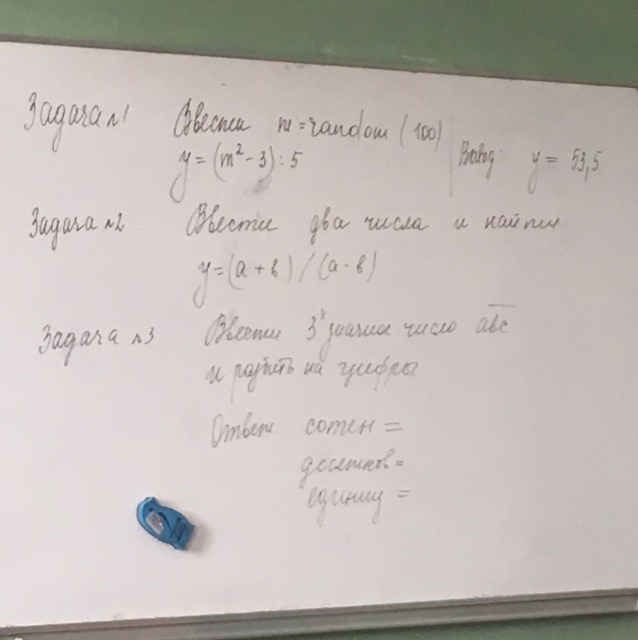 Задача №1 Ввести m = random (100)
y = (m² - 3) : 5 Вывод: y = 53,5
Задача №2 Ввести два числа и найти
y = (a + b) / (a - b)
Задача №3 Ввести 3х значное число abc
и разбить на цифры
Ответ сотен =
десятков =
единиц =